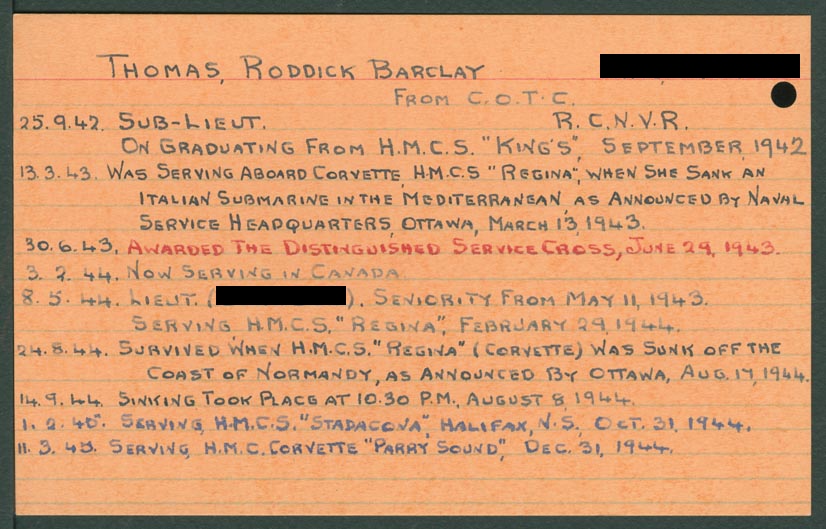 THOMAS, RODDICK BARCLAY
FROM C.O.T.C.
25.9.42. SUB-LIEUT. R.C.N.V.R.
ON GRADUATING FROM H.M.C.S. "KING'S", SEPTEMBER, 1942
13.3.43. WAS SERVING ABOARD CORVETTE, H.M.C.S "REGINA", WHEN SHE SANK AN
ITALIAN SUBMARINE IN THE MEDITERRANEAN, AS ANNOUNCED BY NAVAL
SERVICE HEADQUARTERS, OTTAWA, MARCH 13, 1943.
30.6.43. AWARDED THE DISTINGUISHED SERVICE CROSS, JUNE 29, 1943.
3.2.44. NOW SERVING IN CANADA
8.5.44. LIEUT. ( ), SENIORITY FROM MAY 11, 1943.
SERVING H.M.C.S. "REGINA", FEBRUARY 29, 1944.
24.8.44. SURVIVED WHEN H.M.C.S. "REGINA" (CORVETTE) WAS SUNK OFF THE
COAST OF NORMANDY, AS ANNOUNCED BY OTTAWA, AUG. 17, 1944.
14.9.44. SINKING TOOK PLACE AT 10.30 P.M., AUGUST 8, 1944.
1.2.45. SERVING, H.M.C.S. "STADACONA", HALIFAX, N.S., OCT. 31, 1944.
11.3.45. SERVING, H.M.C. CORVETTE "PARRY SOUND", DEC. 31, 1944.